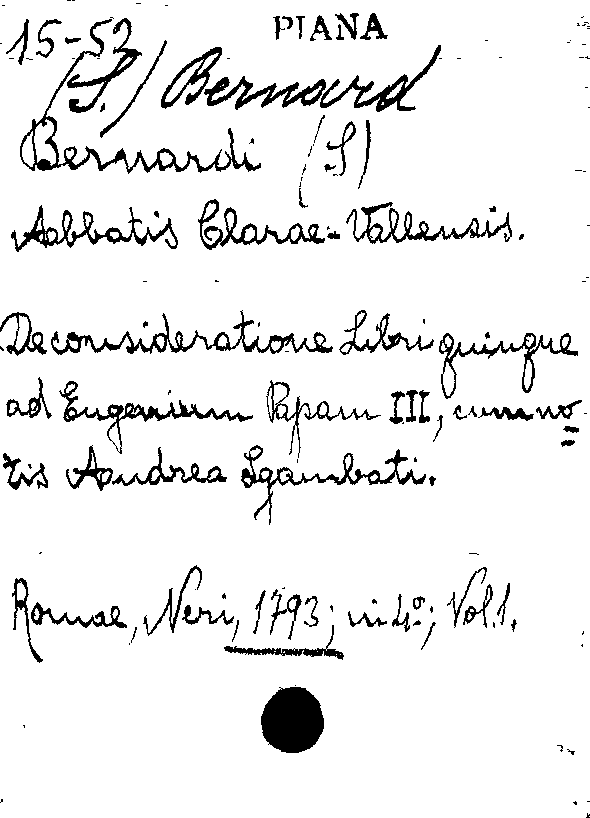 PIANA
15-52
(S.) Bernard
Bernardi (S)
Abbatis Clarae-Vallensis.
De consideratione Libri quinque
ad Eugenium Papam III, cum no=
tis Andrea Sgambati.
Romae, Neri, 1793; in 4º; Vol. 1.